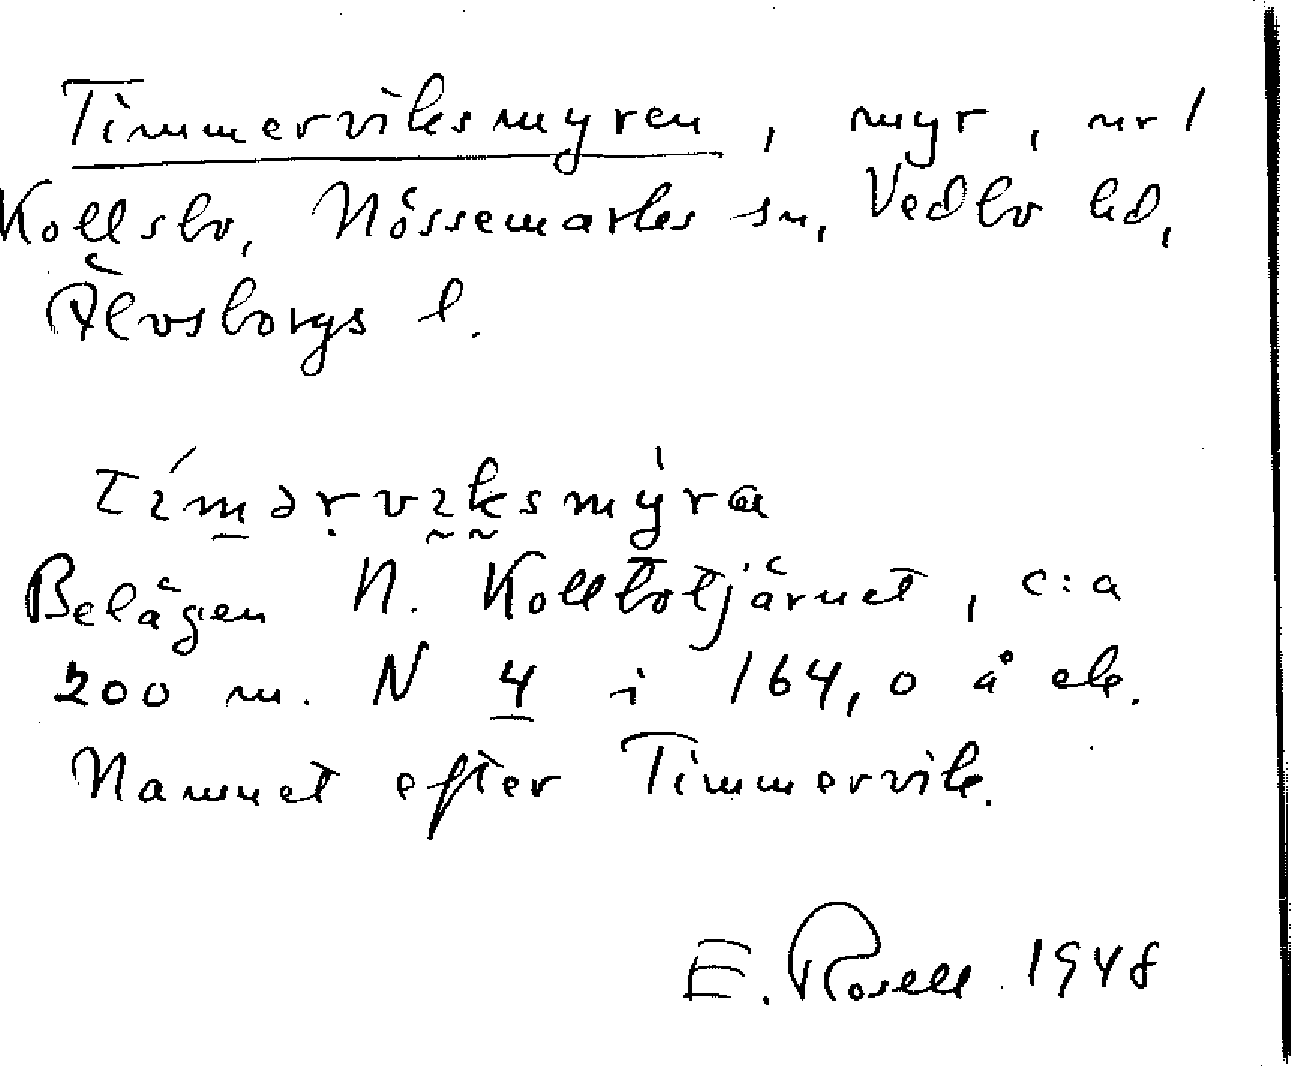 Timmerviksmyren, myr, nr 1
Kollsbo, Nössemarks sn, Vedbo hd,
Älvsborgs l.
tímərvıksmỳra
Belägen N. Kollbotjärnet, c:a
200 m. N 4 i 164,0 å ek.
Namnet efter Timmervik.
E. Rosell 1948